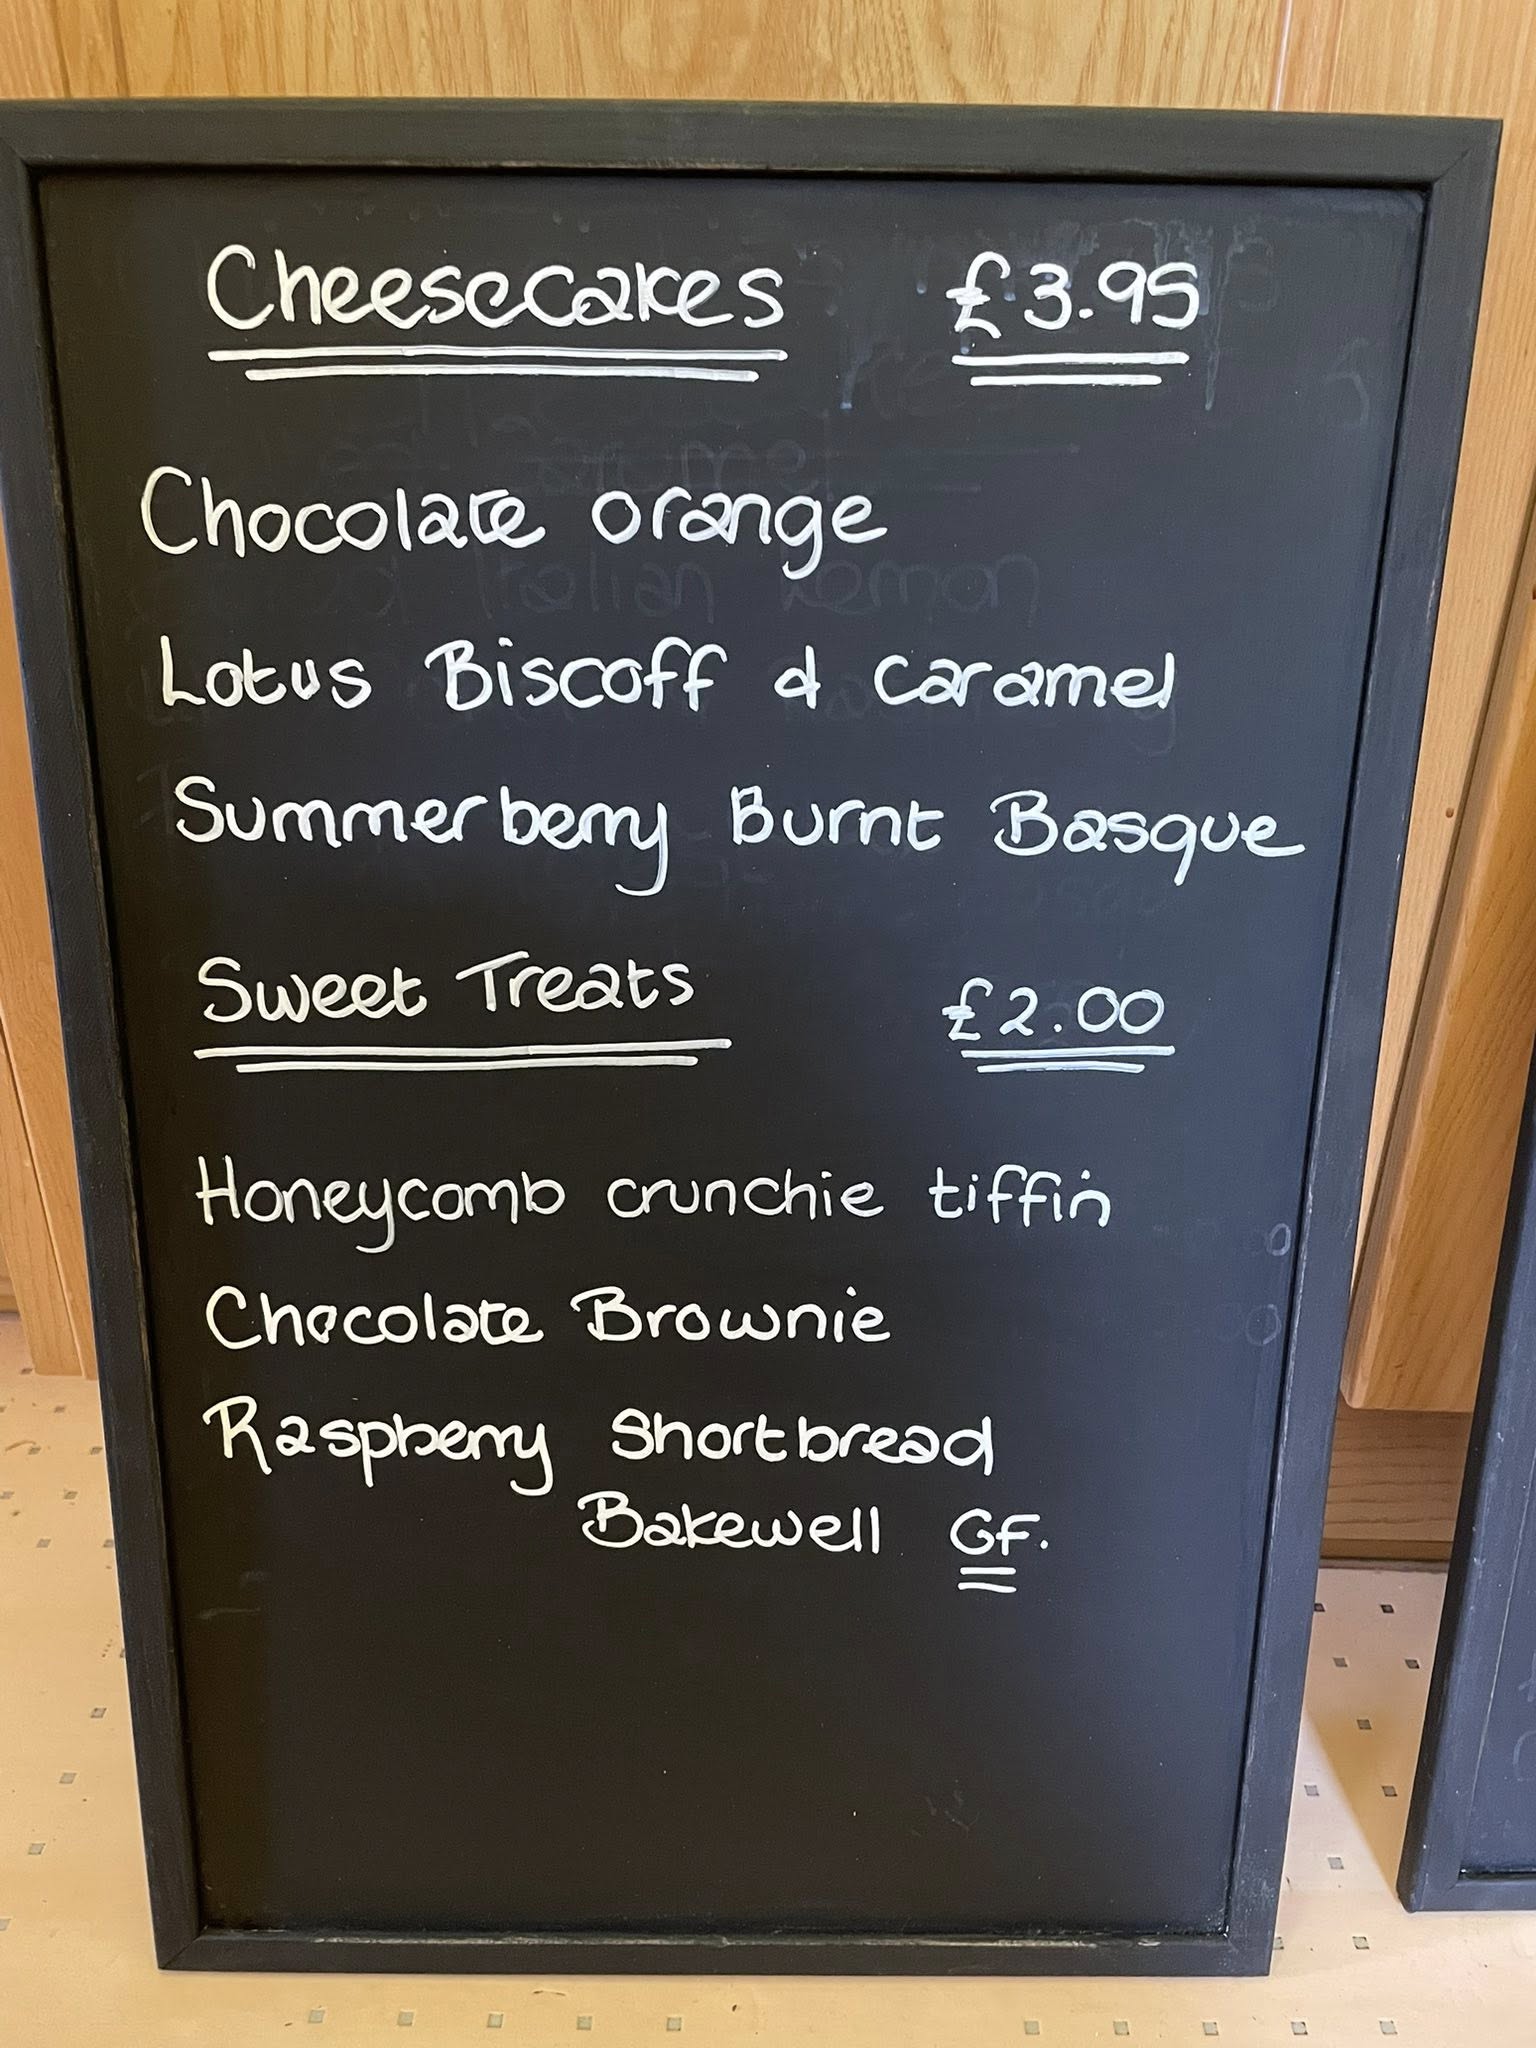 Cheesecakes £3.95
Chocolate orange
Lotus Biscoff & Caramel
Summerberry Burnt Basque
Sweet Treats £2.00
Honeycomb crunchie tiffin
Chocolate Brownie
Raspberry Shortbread
Bakewell GF.